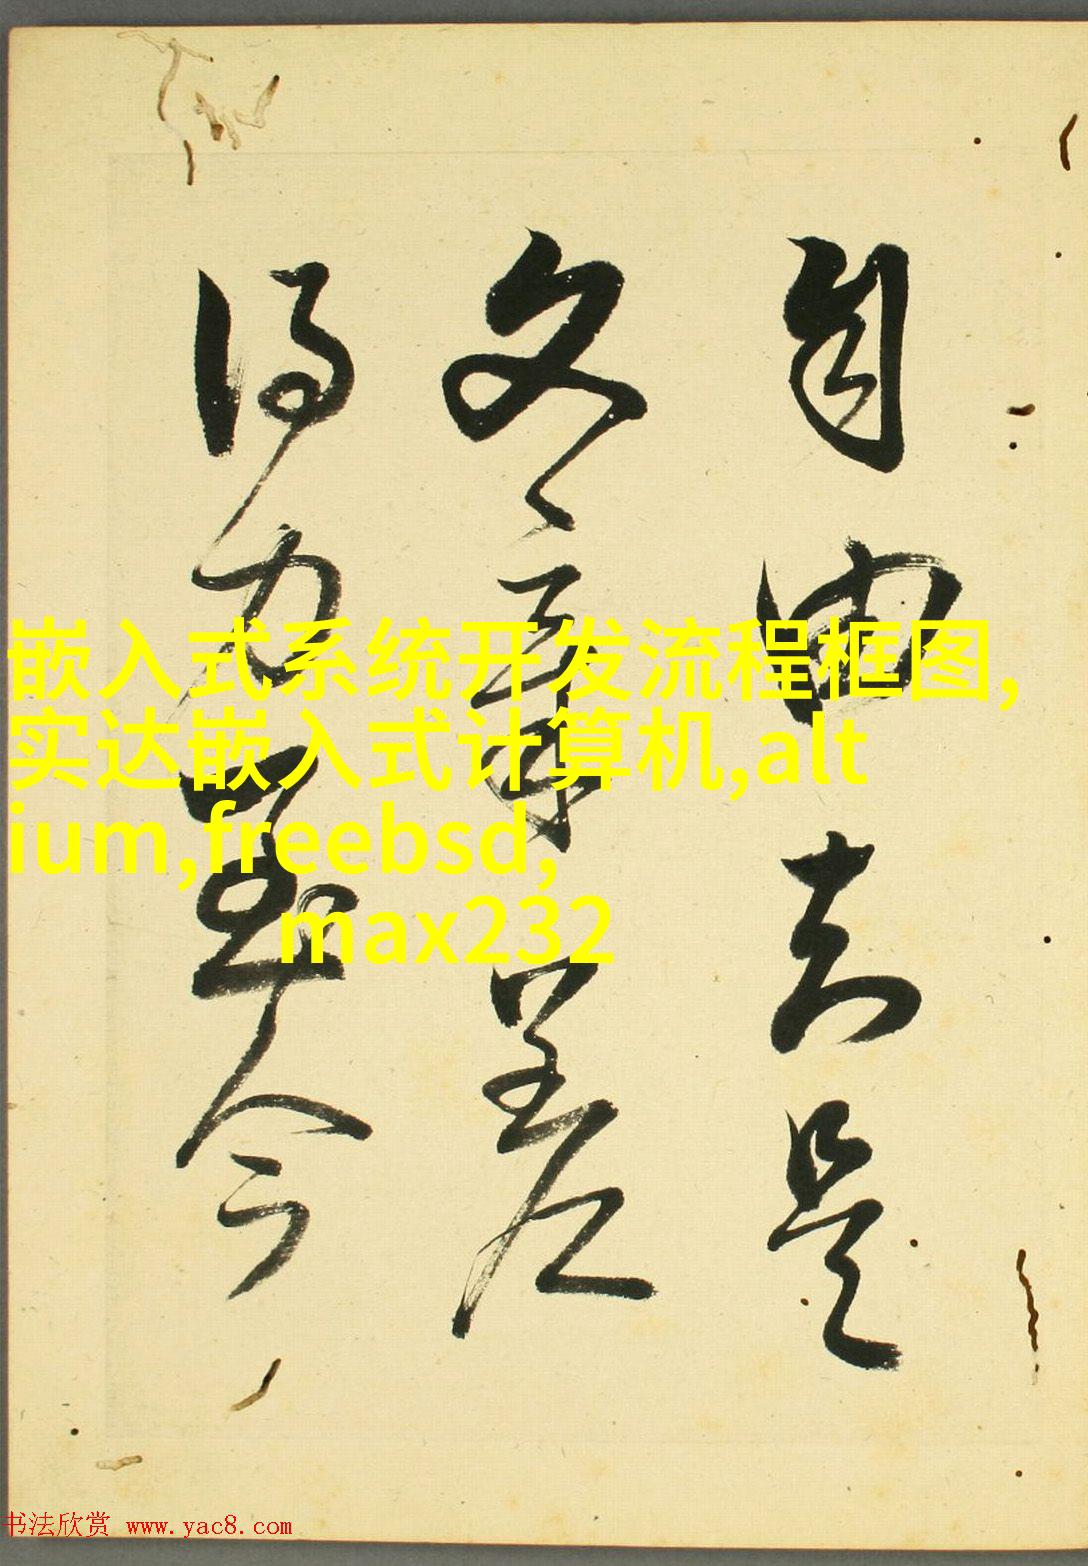 自由是
文章差
得力今
嵌入式系统开发流程框图,
实达嵌入式计算机,alt
ium,freebsd,
max232
书法欣赏 www.yac8.com